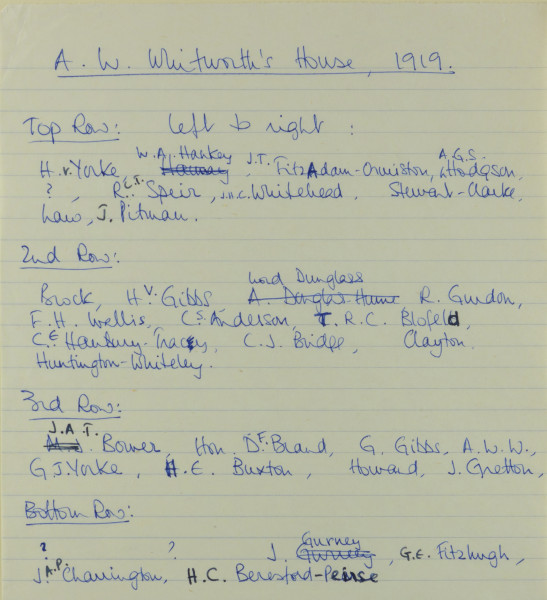 A. W. Whitworth's House, 1919.
Top Row: left to right :
W.A. Hankey J.T. A.G.S.
H.V. Yorke, FitzAdam-Ormiston, Hodgson,
?, R.C.J. Speir, J.H.C. Whitehead, Stewart-Clarke,
Law, J. Pitman.
2nd Row:
Lord Dunglass
Brock, H.V. Gibbs, A. Douglas Hume R. Gurdon,
F.H. Wellis, C.S. Anderson, T.R.C. Blofeld,
C.E. Hanbury-Tracy, C.J. Bridge, Clayton.
Huntington-Whiteley.
3rd Row:
J.A.T.
Bower, Hon. D.F. Brand, G. Gibbs, A.W.W.,
G J. Yorke, H.E. Buxton, Howard, J. Gretton,
Bottom Row:
Gurney
? ? J. , G.E. Fitzhugh,
J.A.P. Charrington, H.C. Beresford-Peirse